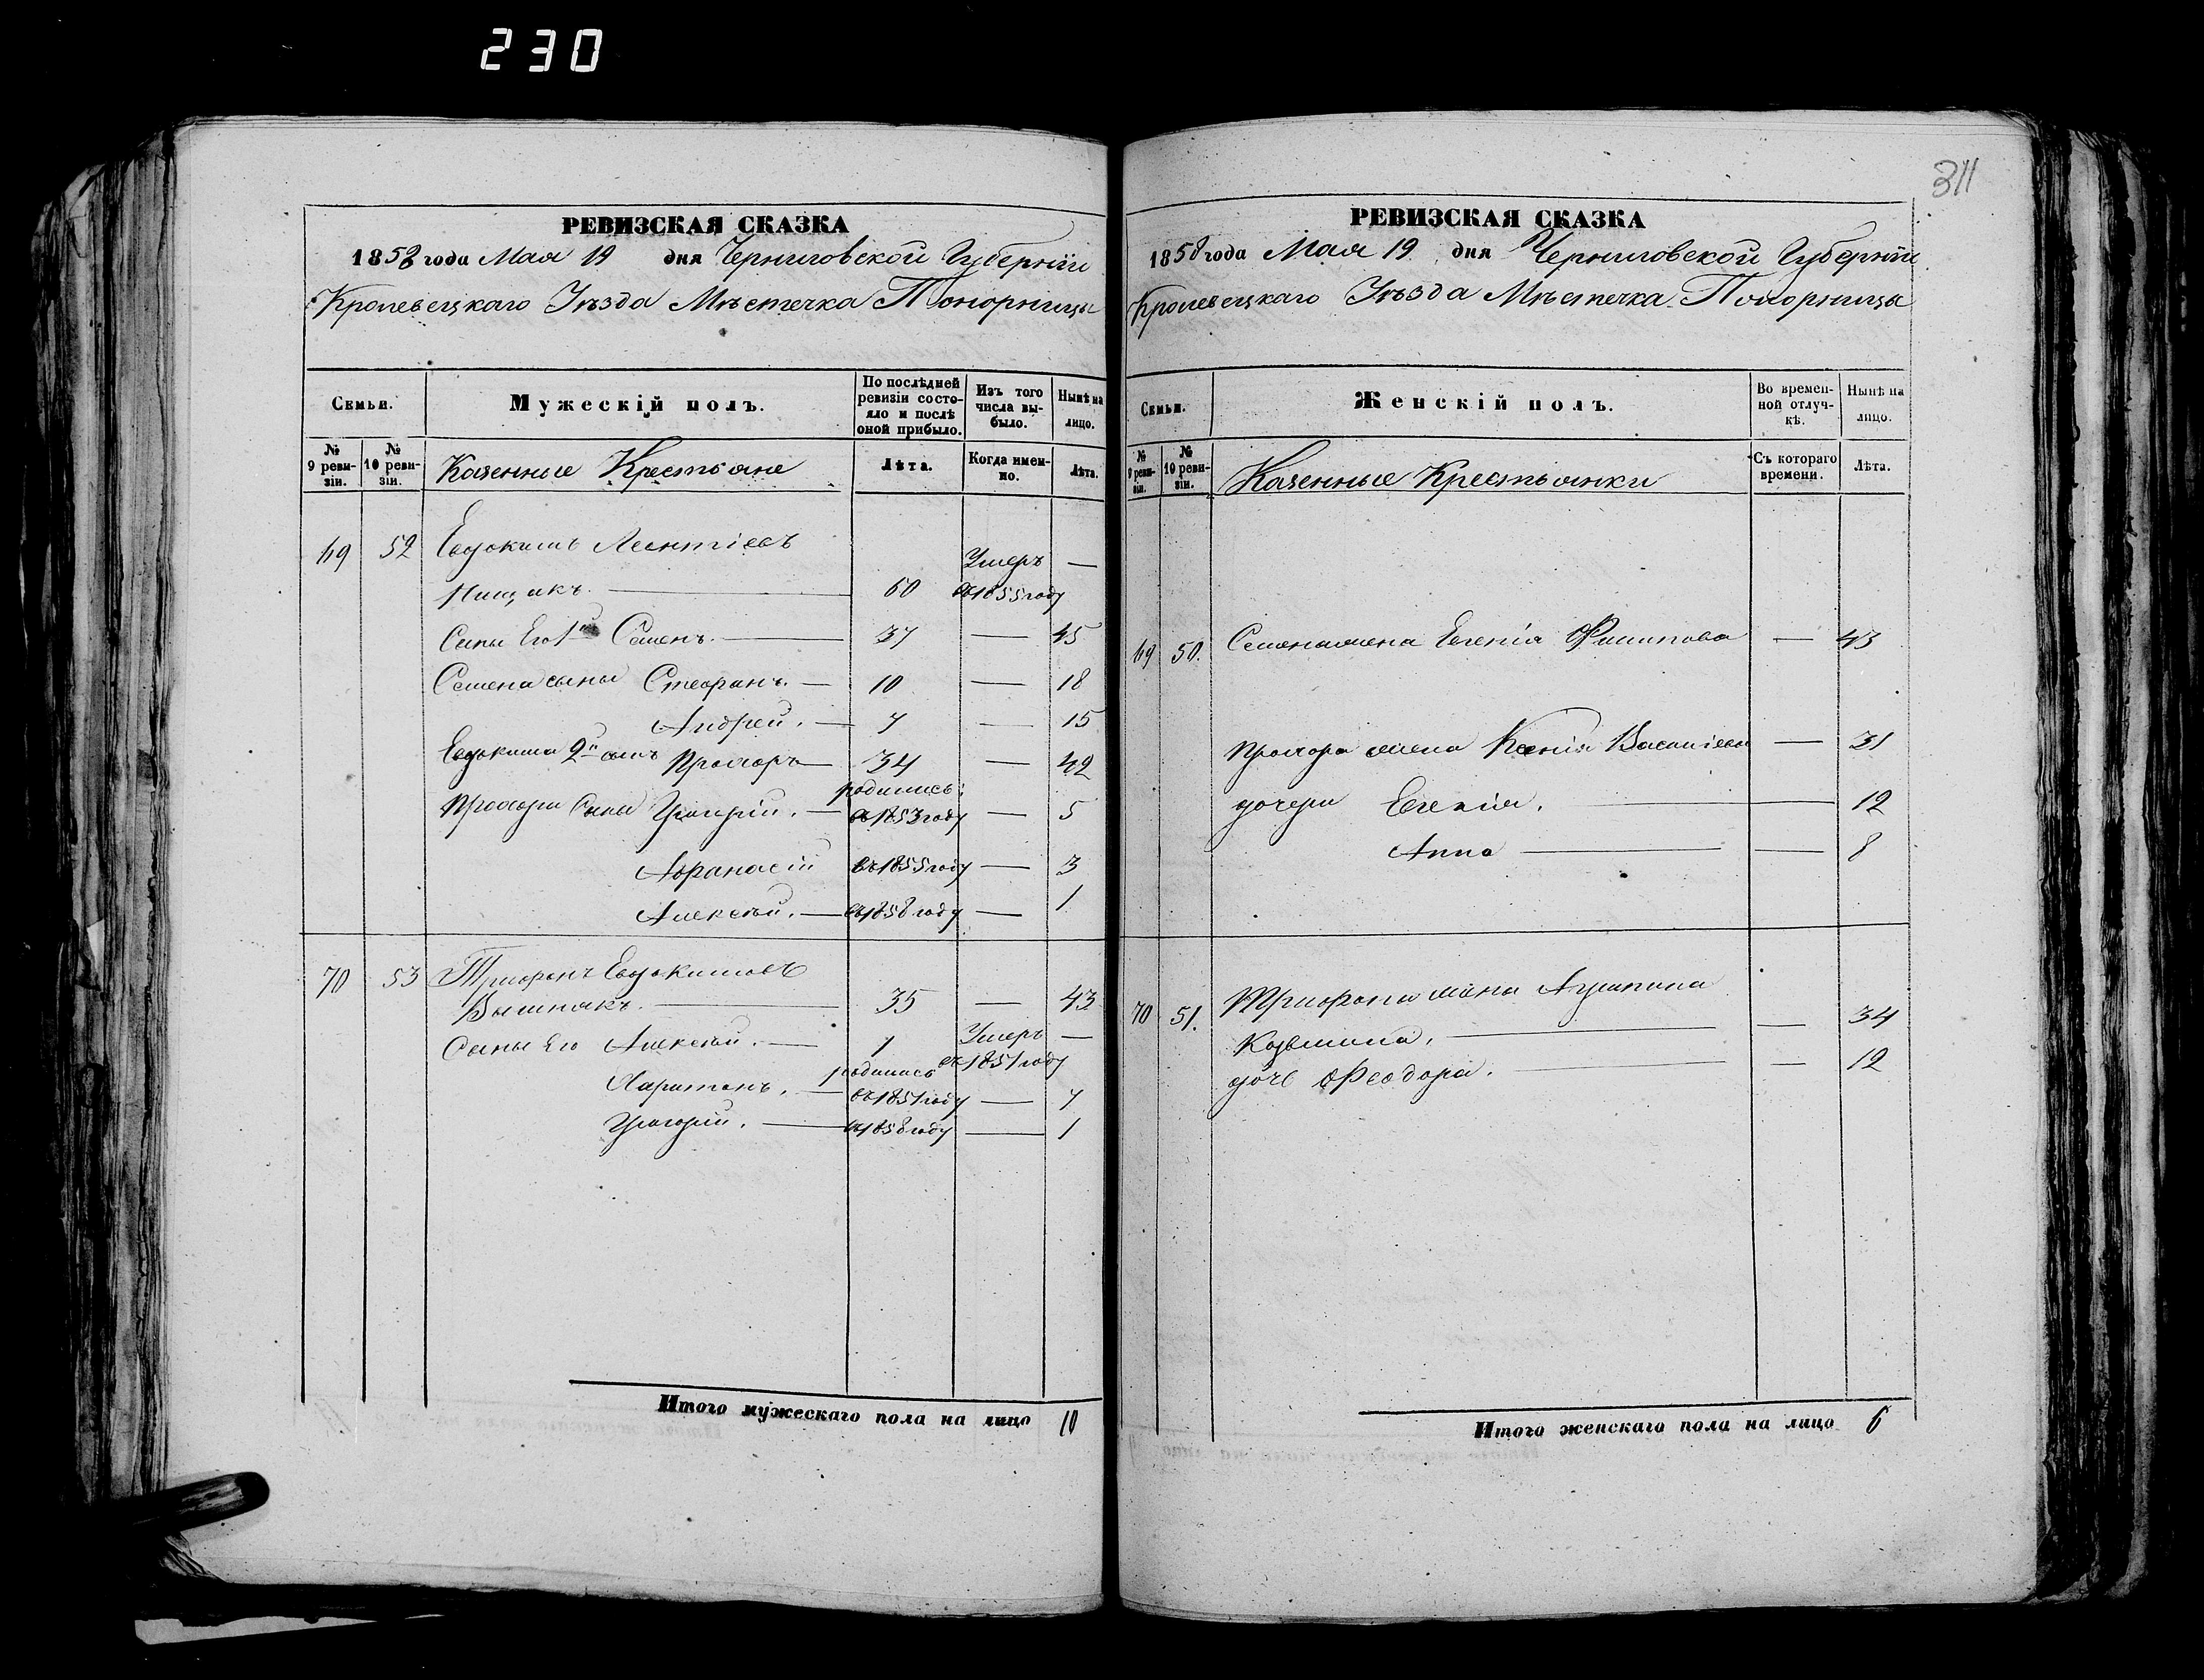 230
311
РЕВИЗСКАЯ СКАЗКА
1858 года Мая 19 дня Черниговской Губернiи
Кролевецкаго Уѣзда Мѣстечка Понорницы
Семьи.
Мужескій полъ.
По послѣдней ревизіи состояло и послѣ оной прибыло.
Изъ того числа выбыло.
Нынѣ на лицо.
№ 9 ревизіи.
№ 10 ревизіи.
Казенные Крестьяне
Лѣта.
Когда именно.
Лѣта.
69 52 Евдокимъ Леонтіевъ
Умеръ —
60 въ 1855 году
Сыны Его 1й Семенъ. — 37 — 45
Семена сыны Стефанъ. — 10 — 18
Андрей. — 7 — 15
Евдокима 2й сынъ Прохоръ — 34 — 42
родились:
Прохора Сыны Григорій. — въ 1853 году — 5
Афанасій въ 1855 году — 3
Алексѣй. — въ 1858 году — 1
70 53 Трифонъ Евдокимовъ
35 — 43
Сыны Его Алексѣй. — 1 Умеръ —
въ 1851 году
родились
Харитонъ. — въ 1851 году — 7
Григорій. — въ 1858 году — 1
Итого мужескаго пола на лицо 10
РЕВИЗСКАЯ СКАЗКА
1858 года Мая 19 дня Черниговской Губерніи
Кролевецкаго Уѣзда Мѣстечка Понорницы
Семьи.
Женскій полъ.
Во временной отлучкѣ.
Нынѣ на лицо.
№ 9 ревизіи.
№ 10 ревизіи.
Казенные Крестьянки
Съ котораго времени.
Лѣта.
69 50. Семена жена Евгенія Филипова — 43
Прохора жена Ксенія Василіева — 31
дочери Евгенія. — 12
Анна — 8
70 51. Трифона жена
Козьмина. — 34
дочь Феодора. — 12
Итого женскаго пола на лицо 6